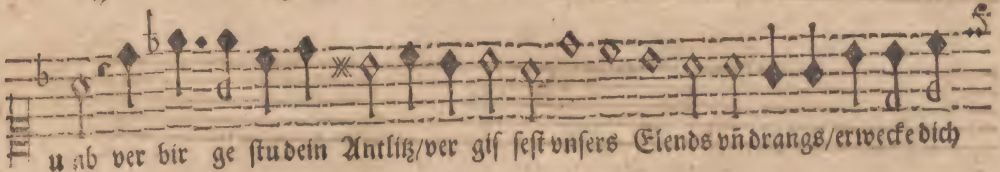 u ab ver bir ge stu dein Antlitz/ver gis sest vnsers Elends vn̄ drangs/erwecke dich